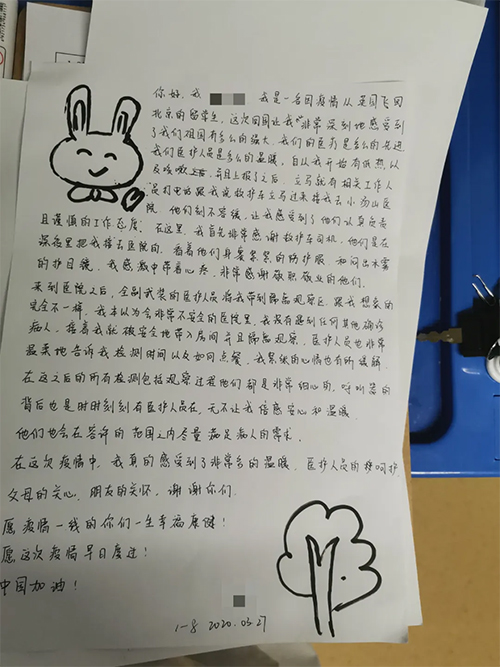 你好，我 我是一名因疫情从英国飞回
北京的留学生，这次回国让我非常深刻地感受到
了我们祖国有多么的强大，我们的医疗是多么的先进
我们医护人员是多么的温暖，自从我开始有低热以
及咳嗽之后，并且上报了之后，立马就有相关工作人
员打电话跟我说救护车立马过来接我去小汤山医
院，他们刻不容缓，让我感受到了他们认真负责
且谨慎的工作态度，在这里，我首先非常感谢救护车司机，他们是在
深夜里把我接去医院的，看着他们身裹紧紧的防护服和闷出水雾
的护目镜，我感激中带着心疼，非常感谢敬职敬业的他们。
来到医院之后，全副武装的医护人员将我带到筛查观察区，跟我想象的
完全不一样，我本以为会非常不安全的医院里，我没有碰到任何其他确诊
病人，接着我就被安全地带入房间并且隔离观察，医护人员也非常
温柔地告诉我检测时间以及如何点餐，我紧绷的心情也有所缓解
在这之后的所有检测包括观察过程他们都是非常细心的，呼叫器的
背后也是时时刻刻有医护人员在，无不让我倍感安心和温暖
他们也会在容许的范围之内尽量满足病人的需求。
在这次疫情中，我真的感受到了非常多的温暖，医护人员的 呵护
父母的关心，朋友的关怀，谢谢你们，
愿疫情一线的你们一生幸福康健！
愿这次疫情早日度过！
中国加油！
2020.03.27